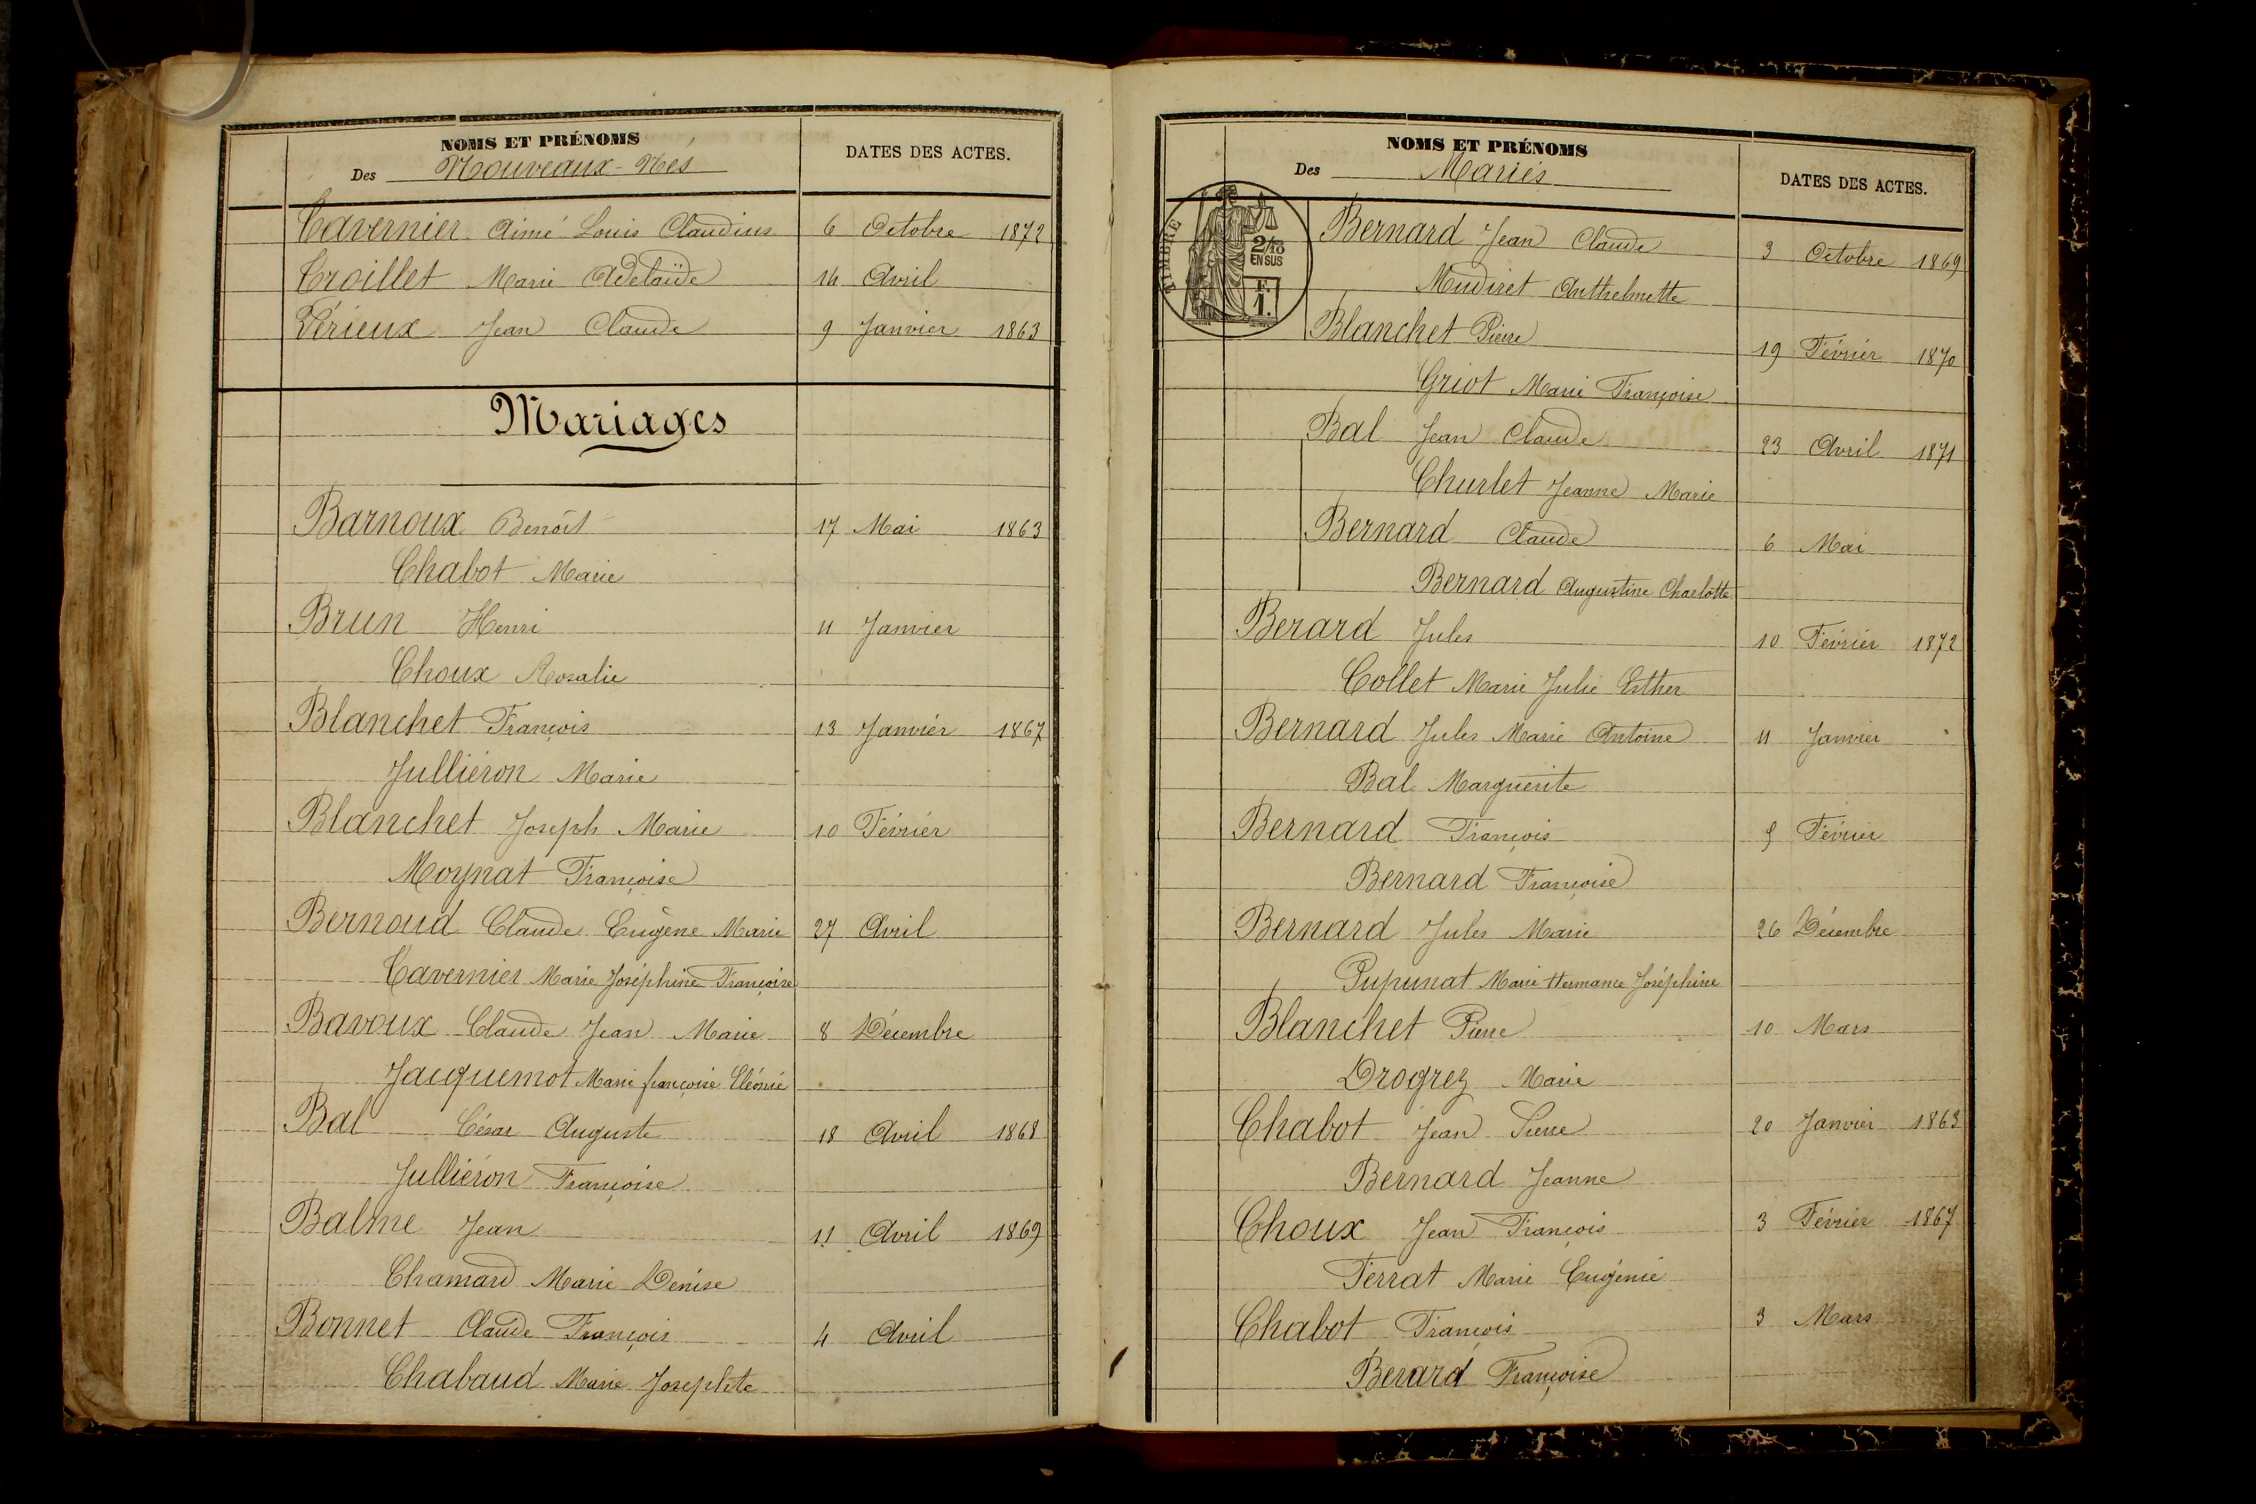 NOMS ET PRÉNOMS
Des Nouveaux-Nés
DATES DES ACTES.
Tavernier Aimé Louis Claudius 6 Octobre 1872
Troillet Marie Adélaïde 14 Avril
Vérieux Jean Claude 9 Janvier 1863
Mariages
Barnoux Benoît 17 Mai 1863
Chabot Marie
Brun Henri 11 Janvier
Choux Rosalie
Blanchet François 13 Janvier 1867
Julliéron Marie
Blanchet Joseph Marie 10 Février
Moynat Françoise
Bernoud Claude Eugène Marie 27 Avril
Tavernier Marie Joséphine Françoise
Bavoux Claude Jean Marie 8 Décembre
Jacquemot Marie françoise Eléonie
Bal César Auguste 18 Avril 1868
Julliéron Françoise
Balme Jean 11 Avril 1869
Chamard Marie Denise
Bonnet Claude François 4 Avril
Chabaud Marie Josephte
NOMS ET PRÉNOMS
Des Mariés
DATES DES ACTES.
TIMBRE
2/10
EN SUS
F.
1.
Bernard Jean Claude 3 Octobre 1869
Mudiret Anthelmette
Blanchet Pierre 19 Février 1870
Griot Marie Françoise
Bal Jean Claude 23 Avril 1871
Churlet Jeanne Marie
Bernard Claude 6 Mai
Bernard Augustine Charlotte
Berard Jules 10 Février 1872
Collet Marie Julie Esther
Bernard Jules Marie Antoine 11 Janvier
Bal Marguerite
Bernard François Février
Bernard Françoise
Bernard Jules Marie 26 Décembre
Pupunat Marie Hermance Joséphine
Blanchet Pierre 10 Mars
Drogrez Marie
Chabot Jean Pierre 20 Janvier 1863
Bernard Jeanne
Choux Jean François 3 Février 1867
Ferrat Marie Eugénie
Chabot François 3 Mars
Berard Françoise